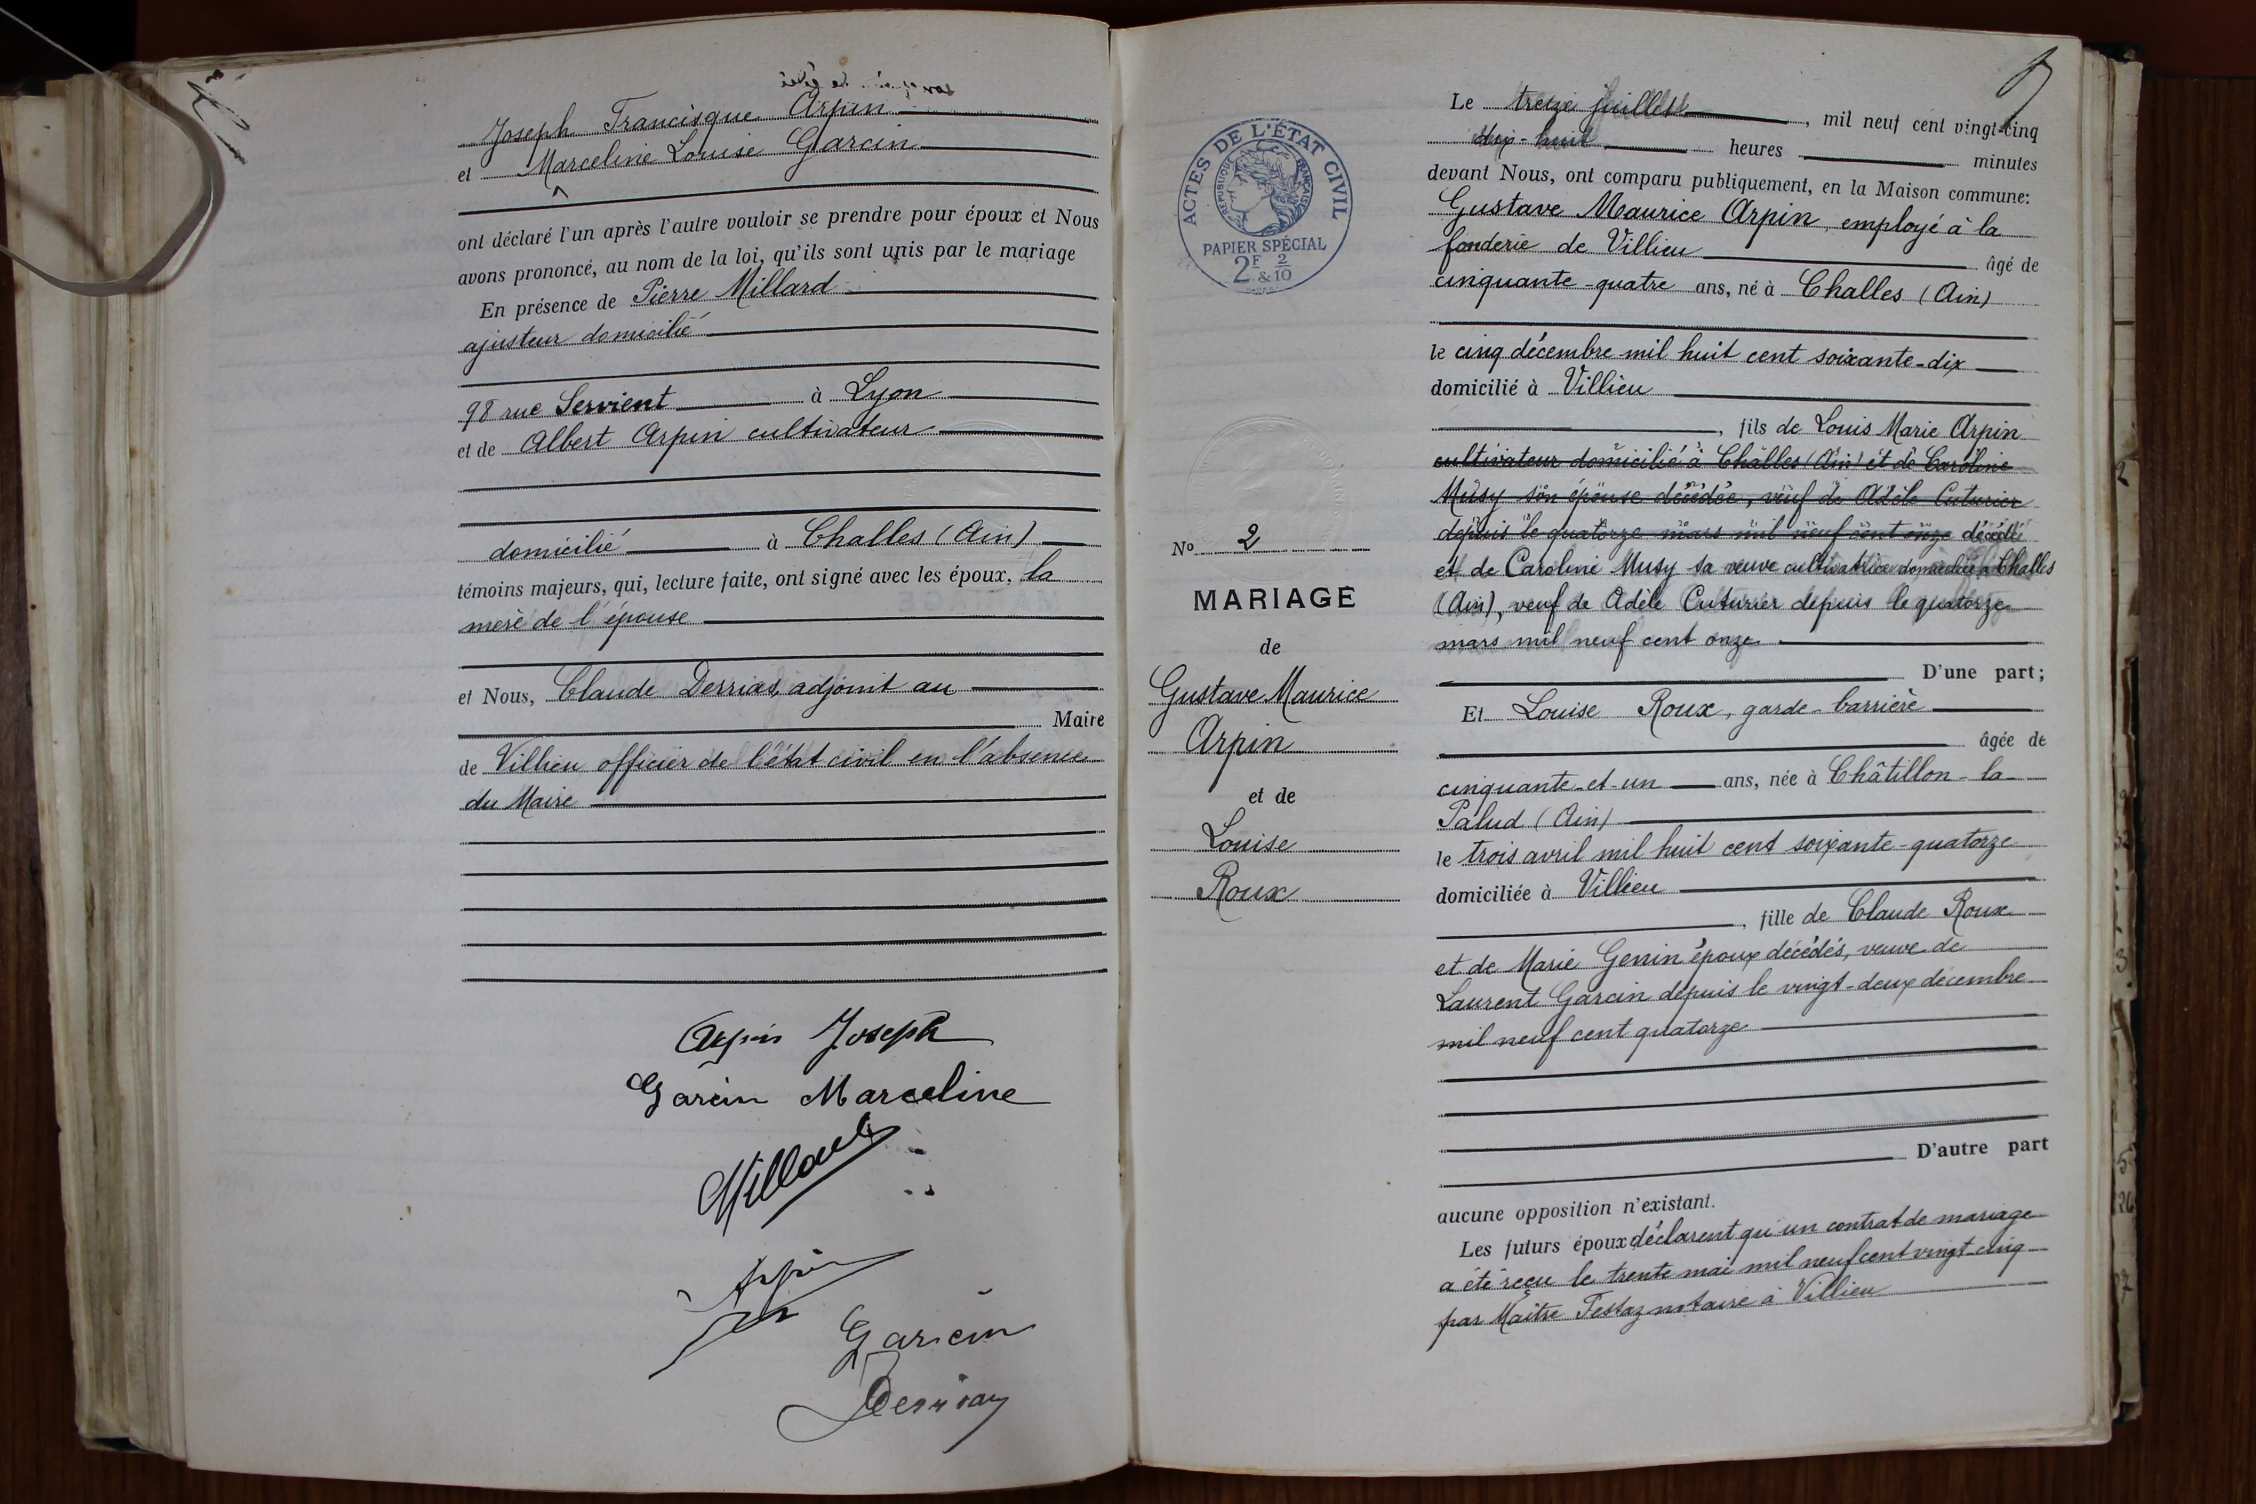 Joseph Francisque Arpin
et Marceline Louise Garcin
ont déclaré l'un après l'autre vouloir se prendre pour époux et Nous
avons prononcé, au nom de la loi, qu'ils sont unis par le mariage
En présence de Pierre Millard
ajusteur domicilié
98 rue Servient à Lyon
et de Albert Arpin cultivateur
domicilié à Challes (Ain)
témoins majeurs, qui, lecture faite, ont signé avec les époux, la
mère de l'épouse
et Nous, Claude Derrias, adjoint au
Maire
de Villieu officier de l'état civil en l'absence
du Maire
Arpin Joseph
Garcin Marceline
Millard
Arpin
Garcin
ACTES DE L'ÉTAT CIVIL
REPUBLIQUE FRANCAISE
PAPIER SPÉCIAL
2F & 2/10
No 2
MARIAGE
de
Gustave Maurice
Arpin
et de
Louise
Roux
Le treize juillet, mil neuf cent vingt-cinq
dix-huit heures minutes
devant Nous, ont comparu publiquement, en la Maison commune:
Gustave Maurice Arpin, employé à la
fonderie de Villieu âgé de
cinquante-quatre ans, né à Challes (Ain)
le cinq décembre mil huit cent soixante-dix
domicilié à Villieu
, fils de Louis Marie Arpin
cultivateur domicilié à Challes (Ain) et de Caroline
Musy son épouse décédée, veuf de Adèle Cuturier
depuis le quatorze mars mil neuf cent onze décédé
et de Caroline Musy sa veuve cultivatrice domiciliée à Challes
(Ain), veuf de Adèle Cuturier depuis le quatorze
mars mil neuf cent onze
D'une part;
Et Louise Roux, garde-barrière
âgée de
cinquante-et-un ans, née à Châtillon-la-
Palud (Ain)
le trois avril mil huit cent soixante-quatorze
domiciliée à Villieu
, fille de Claude Roux
et de Marie Genin époux décédés, veuve de
Laurent Garcin depuis le vingt-deux décembre
mil neuf cent quatorze
D'autre part
aucune opposition n'existant.
Les futurs époux déclarent qu'un contrat de mariage
a été reçu le trente mai mil neuf cent vingt-cinq
par Maître Festaz notaire à Villieu